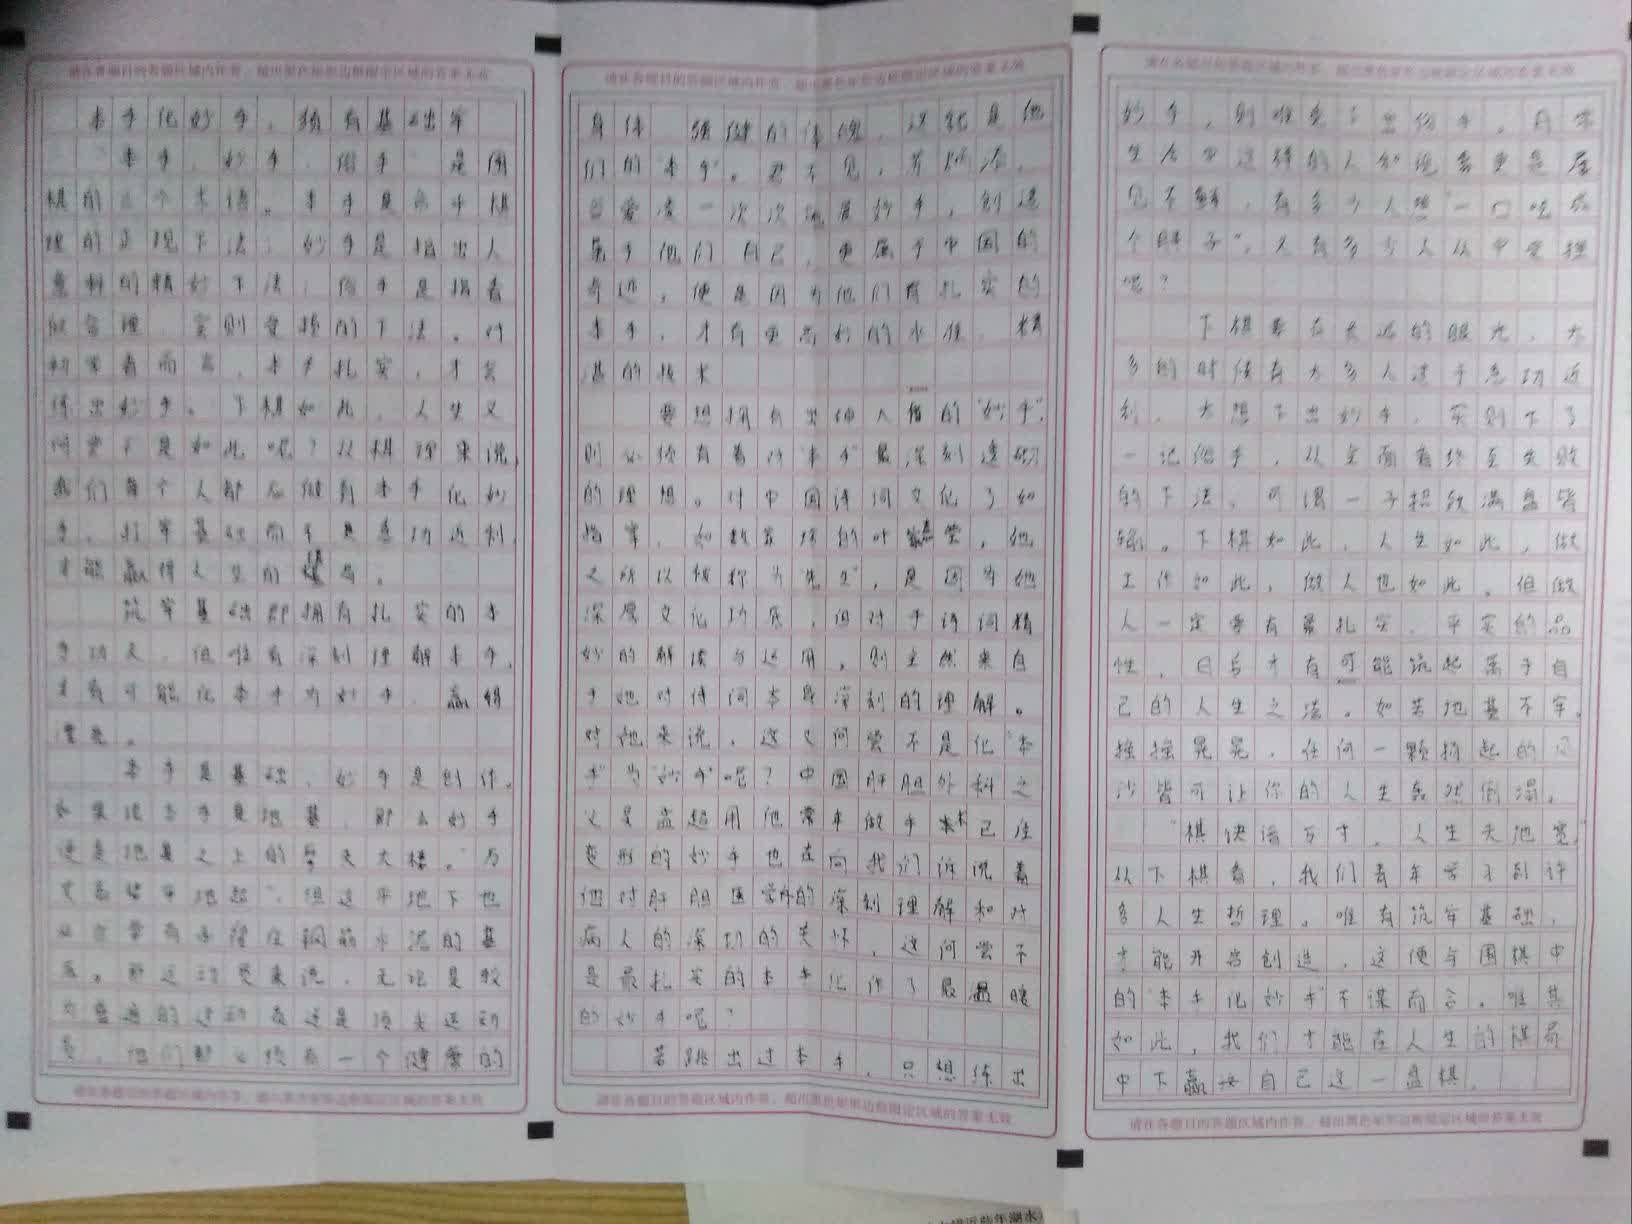 请在各题目的答题区域内作答，超出黑色矩形边框限定区域的答案无效
本手化妙手，须有基础牢
本手、妙手、俗手 是围
棋的三个术语。本手是合乎棋
理的正规下法；妙手是指出人
意料的精妙下法；俗手是指看
似合理 实则受损的下法。对
初学者而言，本手扎实，才会
练出妙手。下棋如此，人生又
何尝不是如此呢？以棋理来说，
我们每个人都应做到本手化妙
手，打牢基础而不是急功近利，
才能赢得人生的
筑牢基础即拥有扎实的本
手功夫，但唯有深刻理解本手，
才有可能化本手为妙手，赢得
漂亮。
本手是基础，妙手是创作。
如果说本手是地基，那么妙手
便是地基之上的摩天大楼。"万
丈高楼平地起"，但这平地下也
必定要有
底。 来说，无论是较
为 的运动 还是顶尖运动
员，他们都必须有一个健康的
请在各题目的答题区域内作答，超出黑色矩形边框限定区域的答案无效
请在各题目的答题区域内作答，超出黑色矩形边框限定区域的答案无效
身体 强健的体魄，这就是他
们的"本手"。君不见，苏炳添、
谷爱凌一次次施展妙手，创造
属于他们自己，更属于中国的
奇迹，便是因为他们有扎实的
本手，才有更高妙的水准、精
湛的技术
要想拥有出神入化的"妙手"，
则必须有着对"本手"最深刻透彻
的理想。对中国诗词文化了如
指掌，如数家珍的叶嘉莹，她
之所以被称为"先生"，是因为她
深厚文化功底，但对于诗词精
妙的解读与运用，则全然来自
于她对诗词本身深刻的理解。
对她来说，这又何尝不是化"本
手"为"妙手"呢？中国肝胆外科之
父吴孟超用他常年做手术已经
变形的妙手也在向我们诉说着
他对肝胆医学的深刻理解和对
病人的深切的关怀，这何尝不
是最扎实的本手化作了最温暖
的妙手呢？
若跳出过本手，只想练出
请在各题目的答题区域内作答，超出黑色矩形边框限定区域的答案无效
请在各题目的答题区域内作答，超出黑色矩形边框限定区域的答案无效
妙手，则难免下出俗手，日常
生活中这样的人和现象更是屡
见不鲜，有多少人想"一口吃成
个胖子"，又有多少人从中受挫
呢？
下棋要在长远的眼光，大
多的时候有太多人过于急功近
利，大想下出妙手，实则下了
一记俗手，从全面看终至失败
的下法，可谓一子招致满盘皆
输。下棋如此，人生如此，做
工作如此，做人也如此。但做
人一定要有最扎实、平实的品
性，日后才有可能筑起属于自
己的人生之 。如若地基不牢，
摇摇晃晃，任何一颗扬起的风
沙皆可让你的人生轰然倒塌。
"棋诀语万寸，人生天地宽"
从下棋看，我们青年学习到许
多人生哲理。唯有筑牢基础，
才能开启创造，这便与围棋中
的"本手化妙手"不谋而合。唯其
如此，我们才能在人生的棋局
中下赢 自己这一盘棋。
请在各题目的答题区域内作答，超出黑色矩形边框限定区域的答案无效